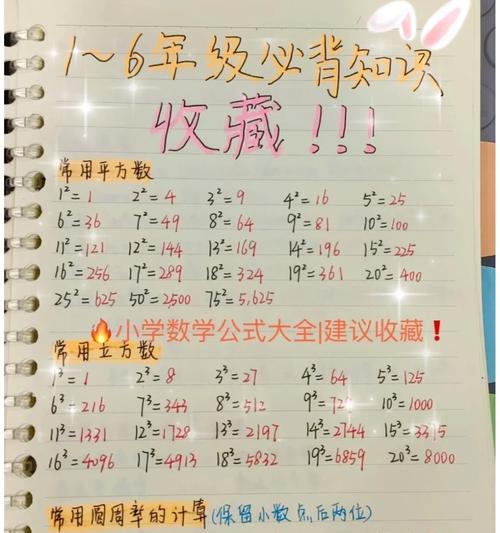 1~6年级必背知识
收藏!!!
常用平方数
1²=1 2²=4 3²=9 4²=16 5²=25
6²=36 7²=49 8²=64 9²=81 10²=100
11²=121 12²=144 13²=169 14²=196 15²=225
16²=256 17²=289 18²=324 19²=361 20²=400
25²=625 50²=2500 75²=5,625
🔥小学数学公式大全|建议收藏❗
常用立方数
1³=1 2³=8 3³=27 4³=64 5³=125
6³=216 7³=343 8³=512 9³=729 10³=1000
11³=1331 12³=1728 13³=2197 14³=2744 15³=3315
16³=4096 17³=4913 18³=5832 19³=6859 20³=8000
常用圆周率的计算(保留小数点后两位)